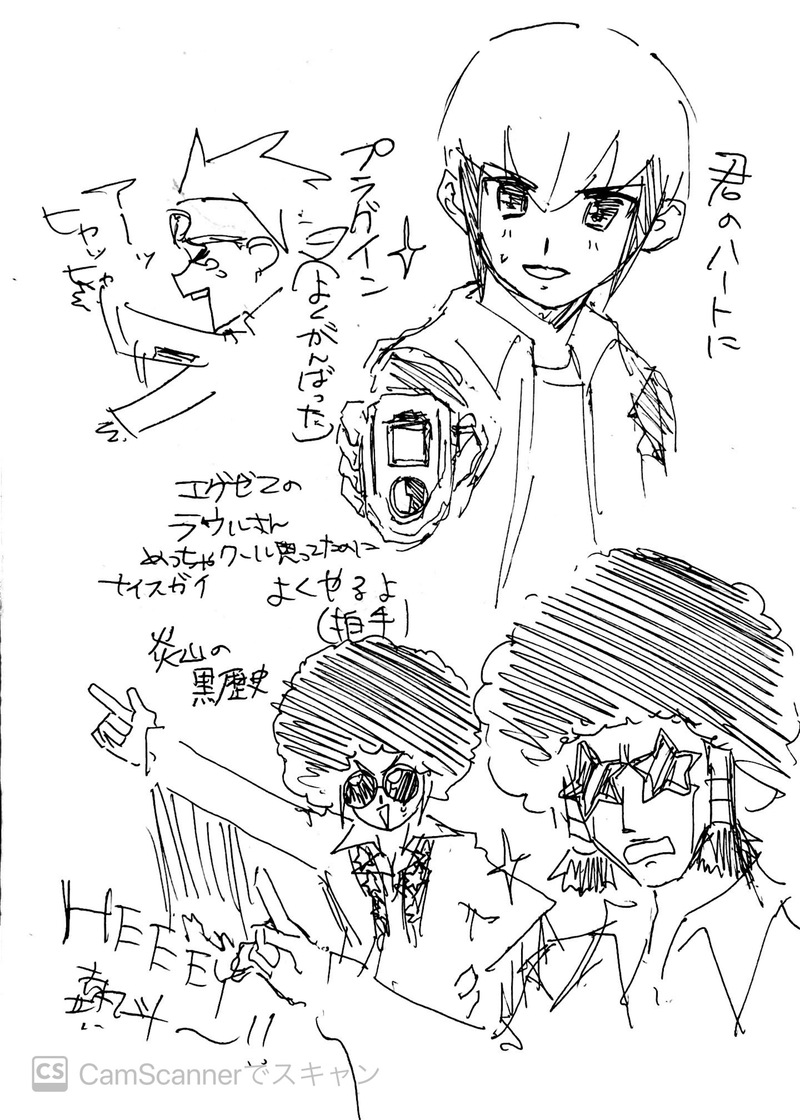 君のハートに
プラグイン
(よくがんばった)
エグゼでの
ラウルさん
めっちゃクール思ってたのに
ナイスガイ
よくやるよ
(拍手)
炎山の
黒歴史
HEEEY
熱斗〜!!
CS CamScannerでスキャン